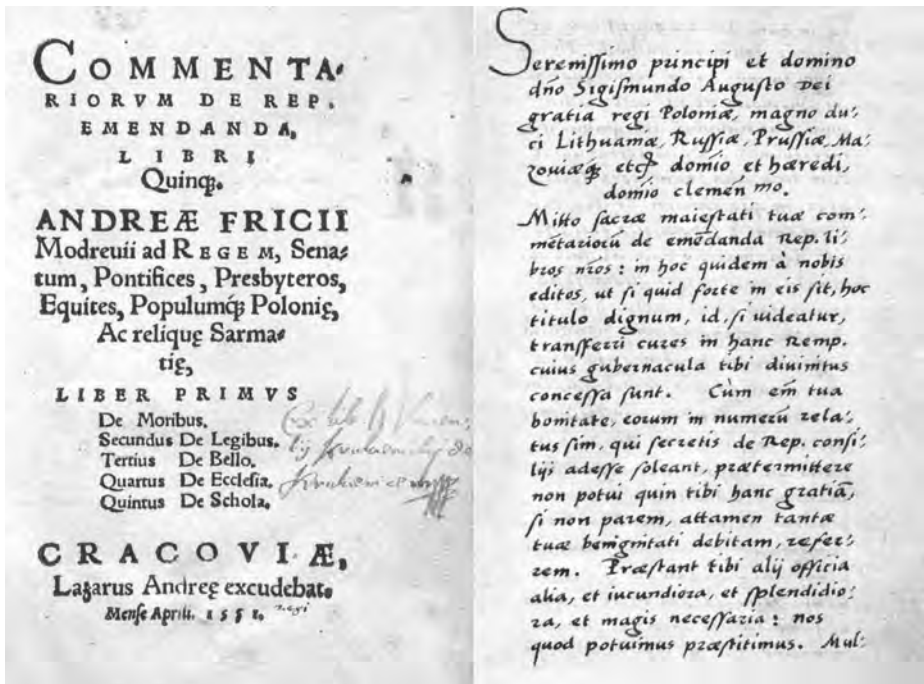 COMMENTA⸗
RIORVM DE REP.
EMENDANDA,
LIBRI
Quinq́ꝫ.
ANDREÆ FRICII
Modreuii ad REGEM, Sena⸗
tum, Pontifices, Presbyteros,
Equites, Populumq́ꝫ Polonię,
Ac relique̢ Sarma⸗
tię,
LIBER PRIMVS
De Moribus.
Secundus De Legibus.
Tertius De Bello.
Quartus De Ecclesia.
Quintus De Schola.
CRACOVIÆ,
Lazarus Andreę excudebat.
Mense Aprili. 1551.
Serenissimo principi et domino
dño Sigismundo Augusto Dei
gratia regi Poloniæ, magno du⸗
ci Lithuaniæ, Russiæ, Prussiæ, Ma⸗
zouiæq́ꝫ domĩo et hæredi,
domĩo clemeñ mo.
Mitto sacræ maiestati tuæ com⸗
mẽtariorũ de emẽdanda Rep. li⸗
bros ñros: in hoc quidem à nobis
editos, ut si quid forte in eis sit, hoc
titulo dignum, id, si uideatur,
transferri cures in hanc Remp.
cuius gubernacula tibi diuinitus
concessa sunt. Cùm em̃ tua
bonitate, eorum in numerũ rela⸗
tus sim, qui secretis de Rep. consi⸗
lijs adesse soleant, prætermittere
non potui quin tibi hanc gratiã,
si non parem, attamen tantæ
tuæ benignitati debitam, refer⸗
rem. Præstant tibi alij officia
alia, et iucundiora, et splendidio⸗
ra, et magis necessaria: nos
quod potuimus præstitimus. Mul⸗